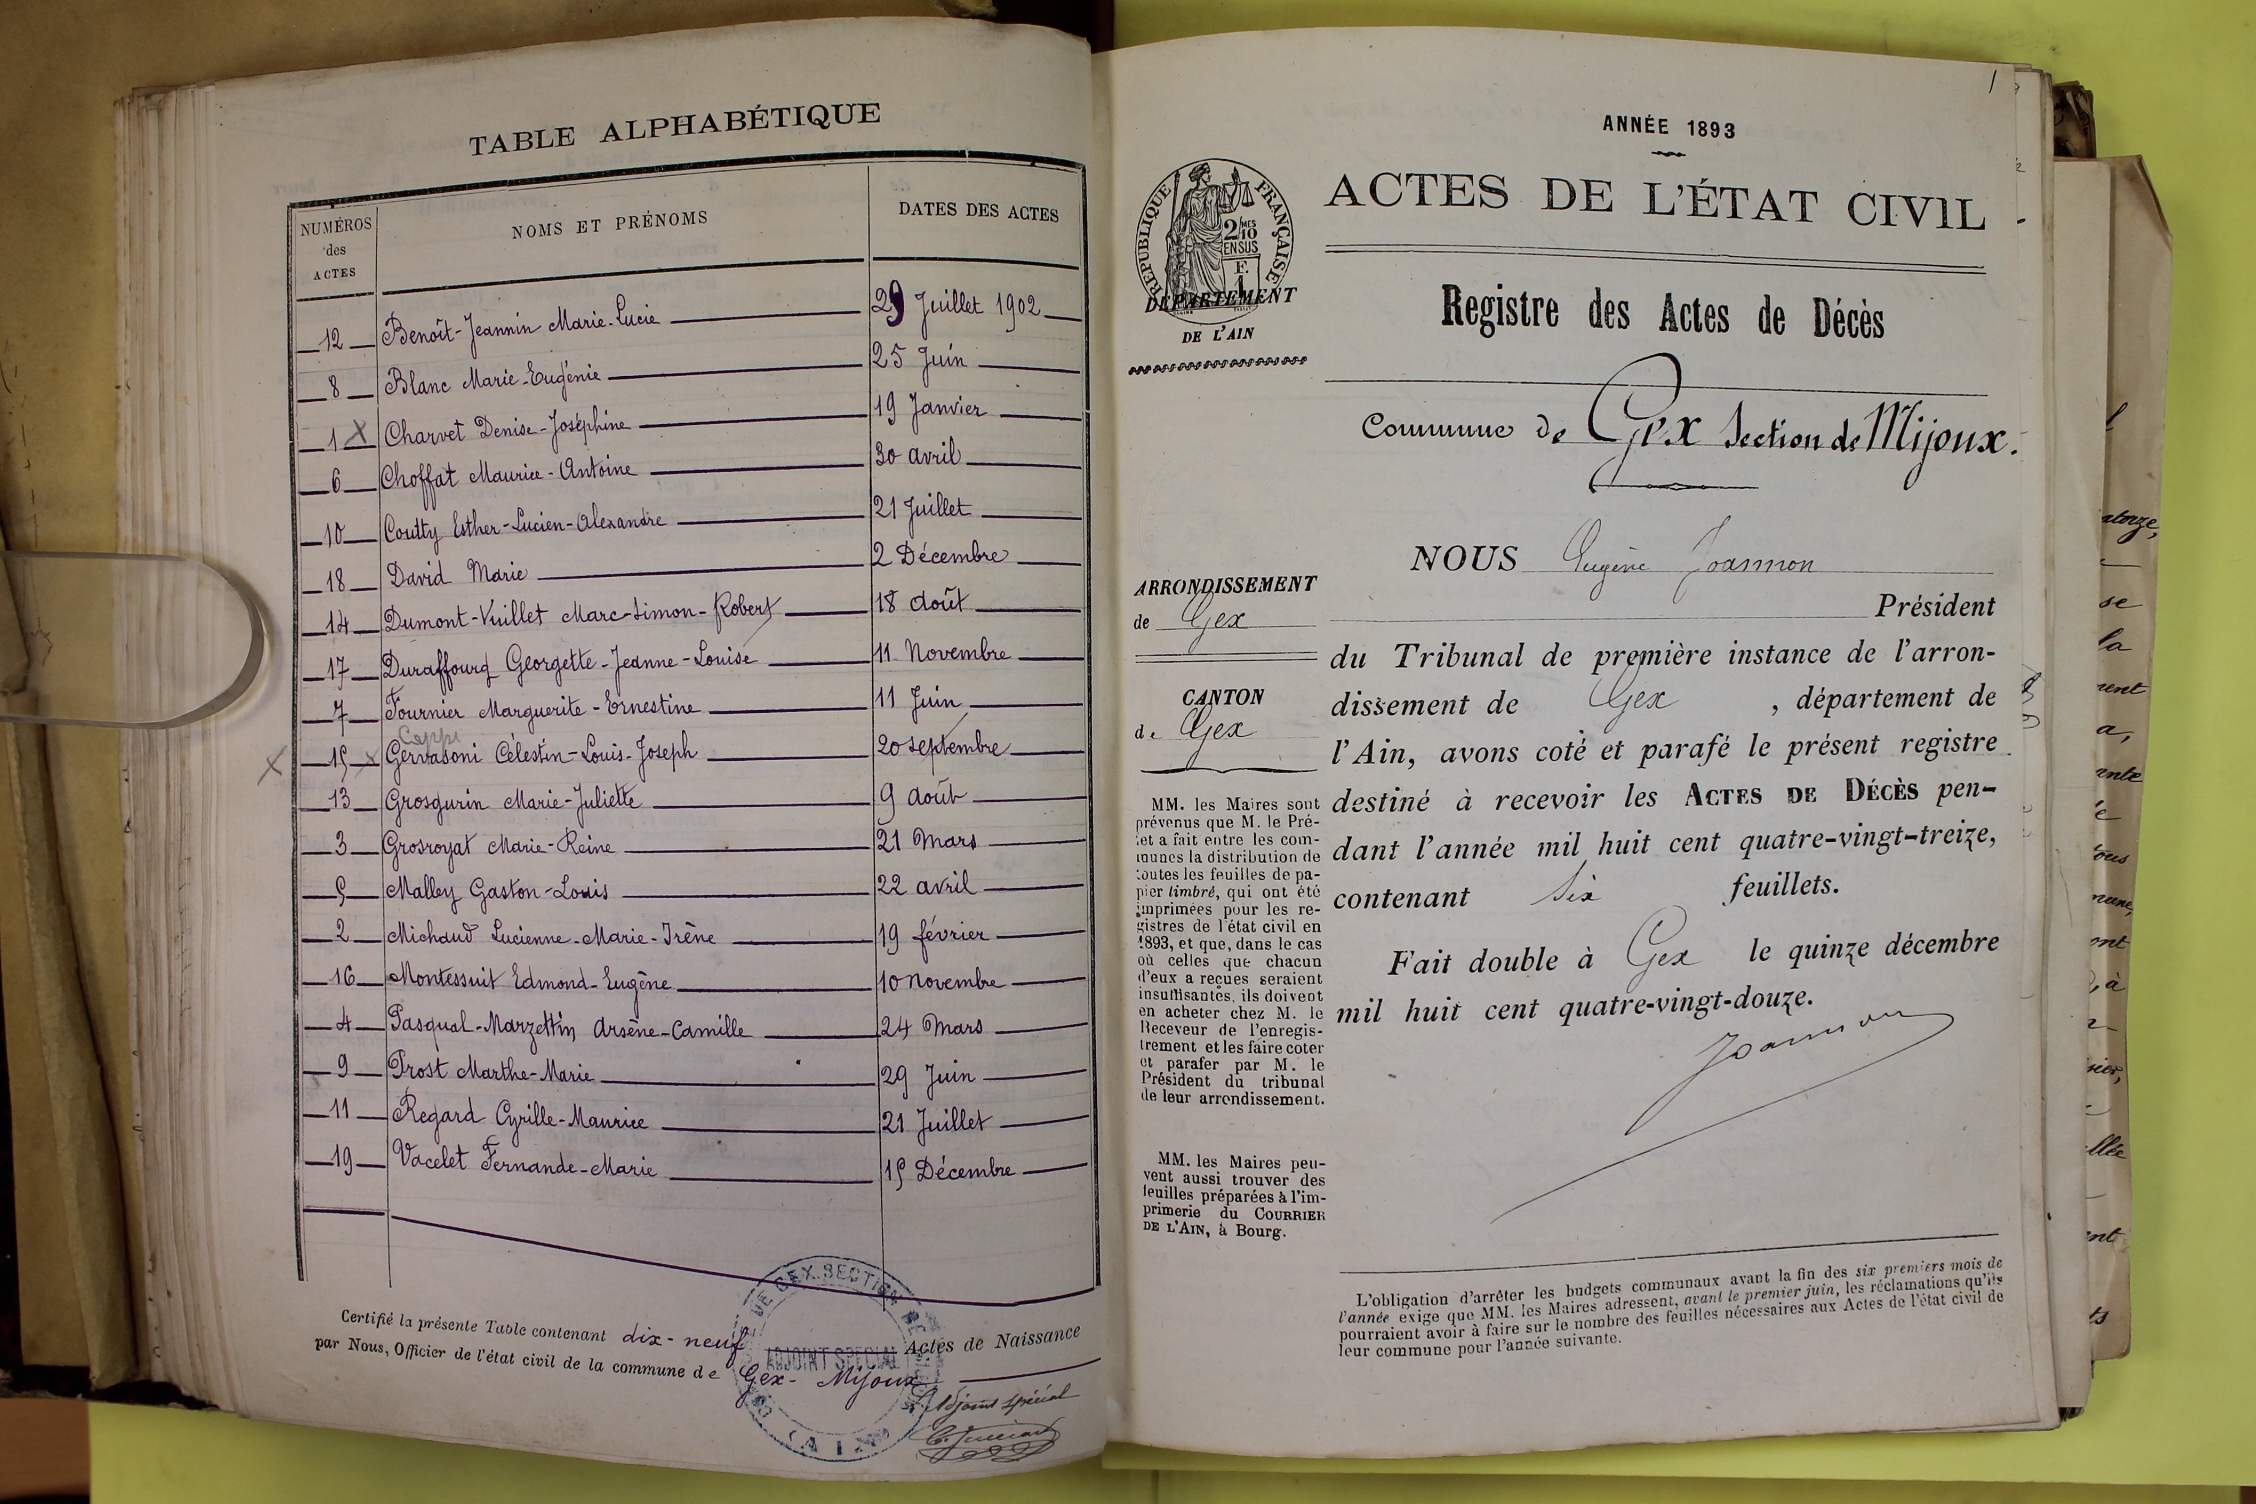 TABLE ALPHABÉTIQUE
NUMÉROS des ACTES
NOMS ET PRÉNOMS
DATES DES ACTES
12 Benoît-Jeannin Marie-Lucie 29 Juillet 1902
8 Blanc Marie-Eugénie 25 Juin
1 X Charvet Denise-Joséphine 19 Janvier
6 Choffat Maurice-Antoine 30 avril
10 Coutty Esther-Lucien-Alexandre 21 Juillet
18 David Marie 2 Décembre
14 Dumont-Vuillet Marc-Simon-Robert 18 Août
17 Duraffourg Georgette-Jeanne-Louise 11 Novembre
7 Fournier Marguerite-Ernestine 11 Juin
X 15 X Gervasoni Célestin-Louis-Joseph 20 septembre
13 Grosgurin Marie-Juliette 9 Août
3 Grosroyat Marie-Reine 21 Mars
5 Malley Gaston-Louis 22 avril
2 Michaud Lucienne-Marie-Irène 19 février
16 Montessuit Edmond-Eugène 10 novembre
4 Pasqual-Marzettin Arsène-Camille 24 Mars
9 Prost Marthe-Marie 29 Juin
11 Regard Cyrille-Maurice 21 Juillet
19 Vacelet Fernande-Marie 15 Décembre
Certifié la présente Table contenant dix-neuf Actes de Naissance
par Nous, Officier de l'état civil de la commune de Gex-Mijoux
ADJOINT SPECIAL
L'Adjoint spécial
1
ANNÉE 1893
ACTES DE L'ÉTAT CIVIL
RÉPUBLIQUE FRANÇAISE
2/10 MES
EN SUS
F.
1
DÉPARTEMENT
DE L'AIN
Registre des Actes de Décès
Commune de Gex Section de Mijoux.
ARRONDISSEMENT
de Gex
CANTON
de Gex
MM. les Maires sont
prévenus que M. le Pré-
fet a fait entre les com-
munes la distribution de
toutes les feuilles de pa-
pier timbré, qui ont été
imprimées pour les re-
gistres de l'état civil en
1893, et que, dans le cas
où celles que chacun
d'eux a reçues seraient
insuffisantes, ils doivent
en acheter chez M. le
Receveur de l'enregis-
trement et les faire coter
et parafer par M. le
Président du tribunal
de leur arrondissement.
MM. les Maires peu-
vent aussi trouver des
feuilles préparées à l'im-
primerie du COURRIER
DE L'AIN, à Bourg.
NOUS Eugène Joannon
Président
du Tribunal de première instance de l'arron-
dissement de Gex , département de
l'Ain, avons coté et parafé le présent registre
destiné à recevoir les ACTES DE DÉCÈS pen-
dant l'année mil huit cent quatre-vingt-treize,
contenant Six feuillets.
Fait double à Gex le quinze décembre
mil huit cent quatre-vingt-douze.
Joannon
L'obligation d'arrêter les budgets communaux avant la fin des six premiers mois de
l'année exige que MM. les Maires adressent, avant le premier juin, les réclamations qu'ils
pourraient avoir à faire sur le nombre des feuilles nécessaires aux Actes de l'état civil de
leur commune pour l'année suivante.